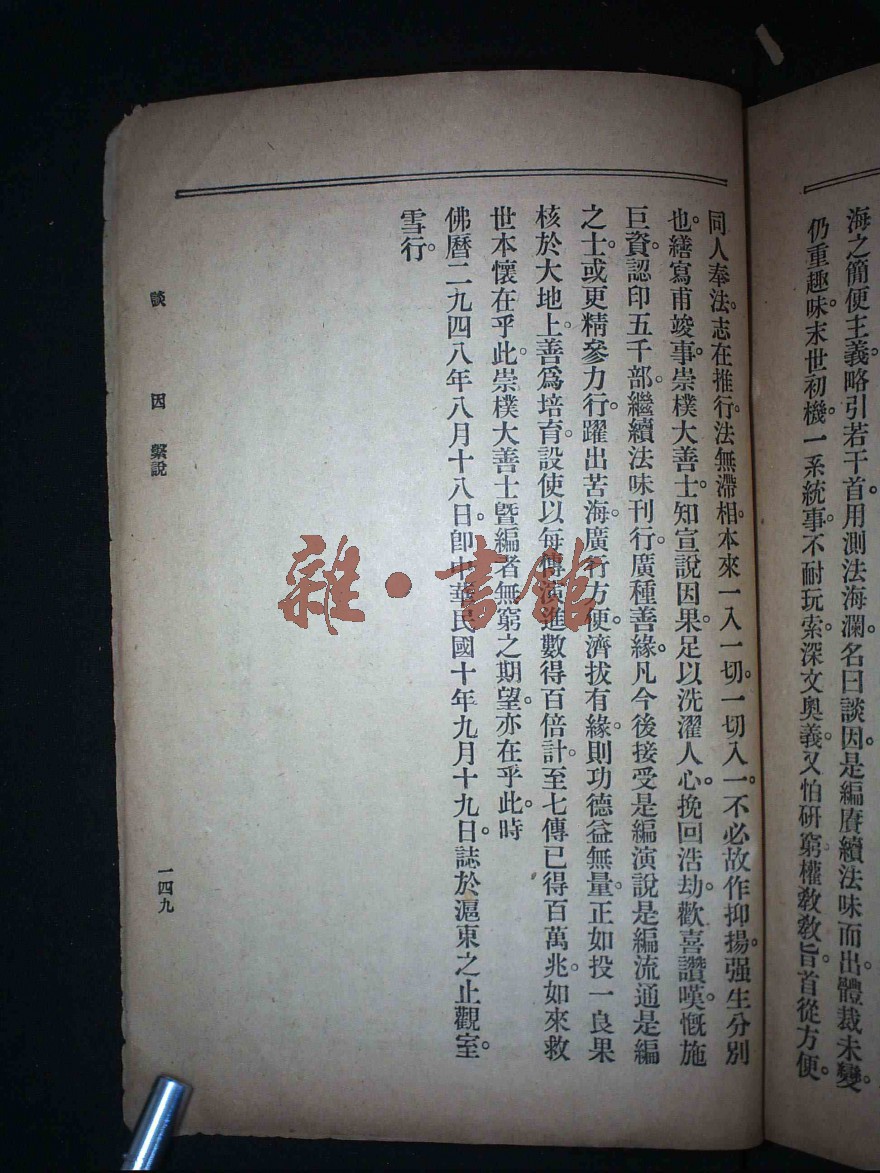 海之簡便主義。略引若干首。用測法海瀾。名曰談因。是編賡續法味而出。體裁未變。
仍重趣味。末世初機。一系統事。不耐玩索深文奧義。又怕研窮權教教旨。首從方便。
同人奉法。志在推行。法無滯相。本來一入一切。一切入一。不必故作抑揚。强生分別
也。繕寫甫竣事。崇樸大善士。知宣說因果。足以洗濯人心。挽回浩劫。歡喜讚嘆。慨施
巨資。認印五千部。繼續法味刊行。廣種善緣。凡今後接受是編。演說是編。流通是編
之士。或更精參力行。躍出苦海。廣行方便。濟拔有緣。則功德益無量。正如投一良果
核於大地上。善爲培育。設使以每傳演進數得百倍計。至七傳已得百萬兆。如來救
世本懷在乎此。崇樸大善士曁編者無窮之期望。亦在乎此。時
佛曆二九四八年八月十八日。卽中華民國十年九月十九日。誌於滬東之止觀室。
雪行。
談因 繫說
一四九
雜·書館